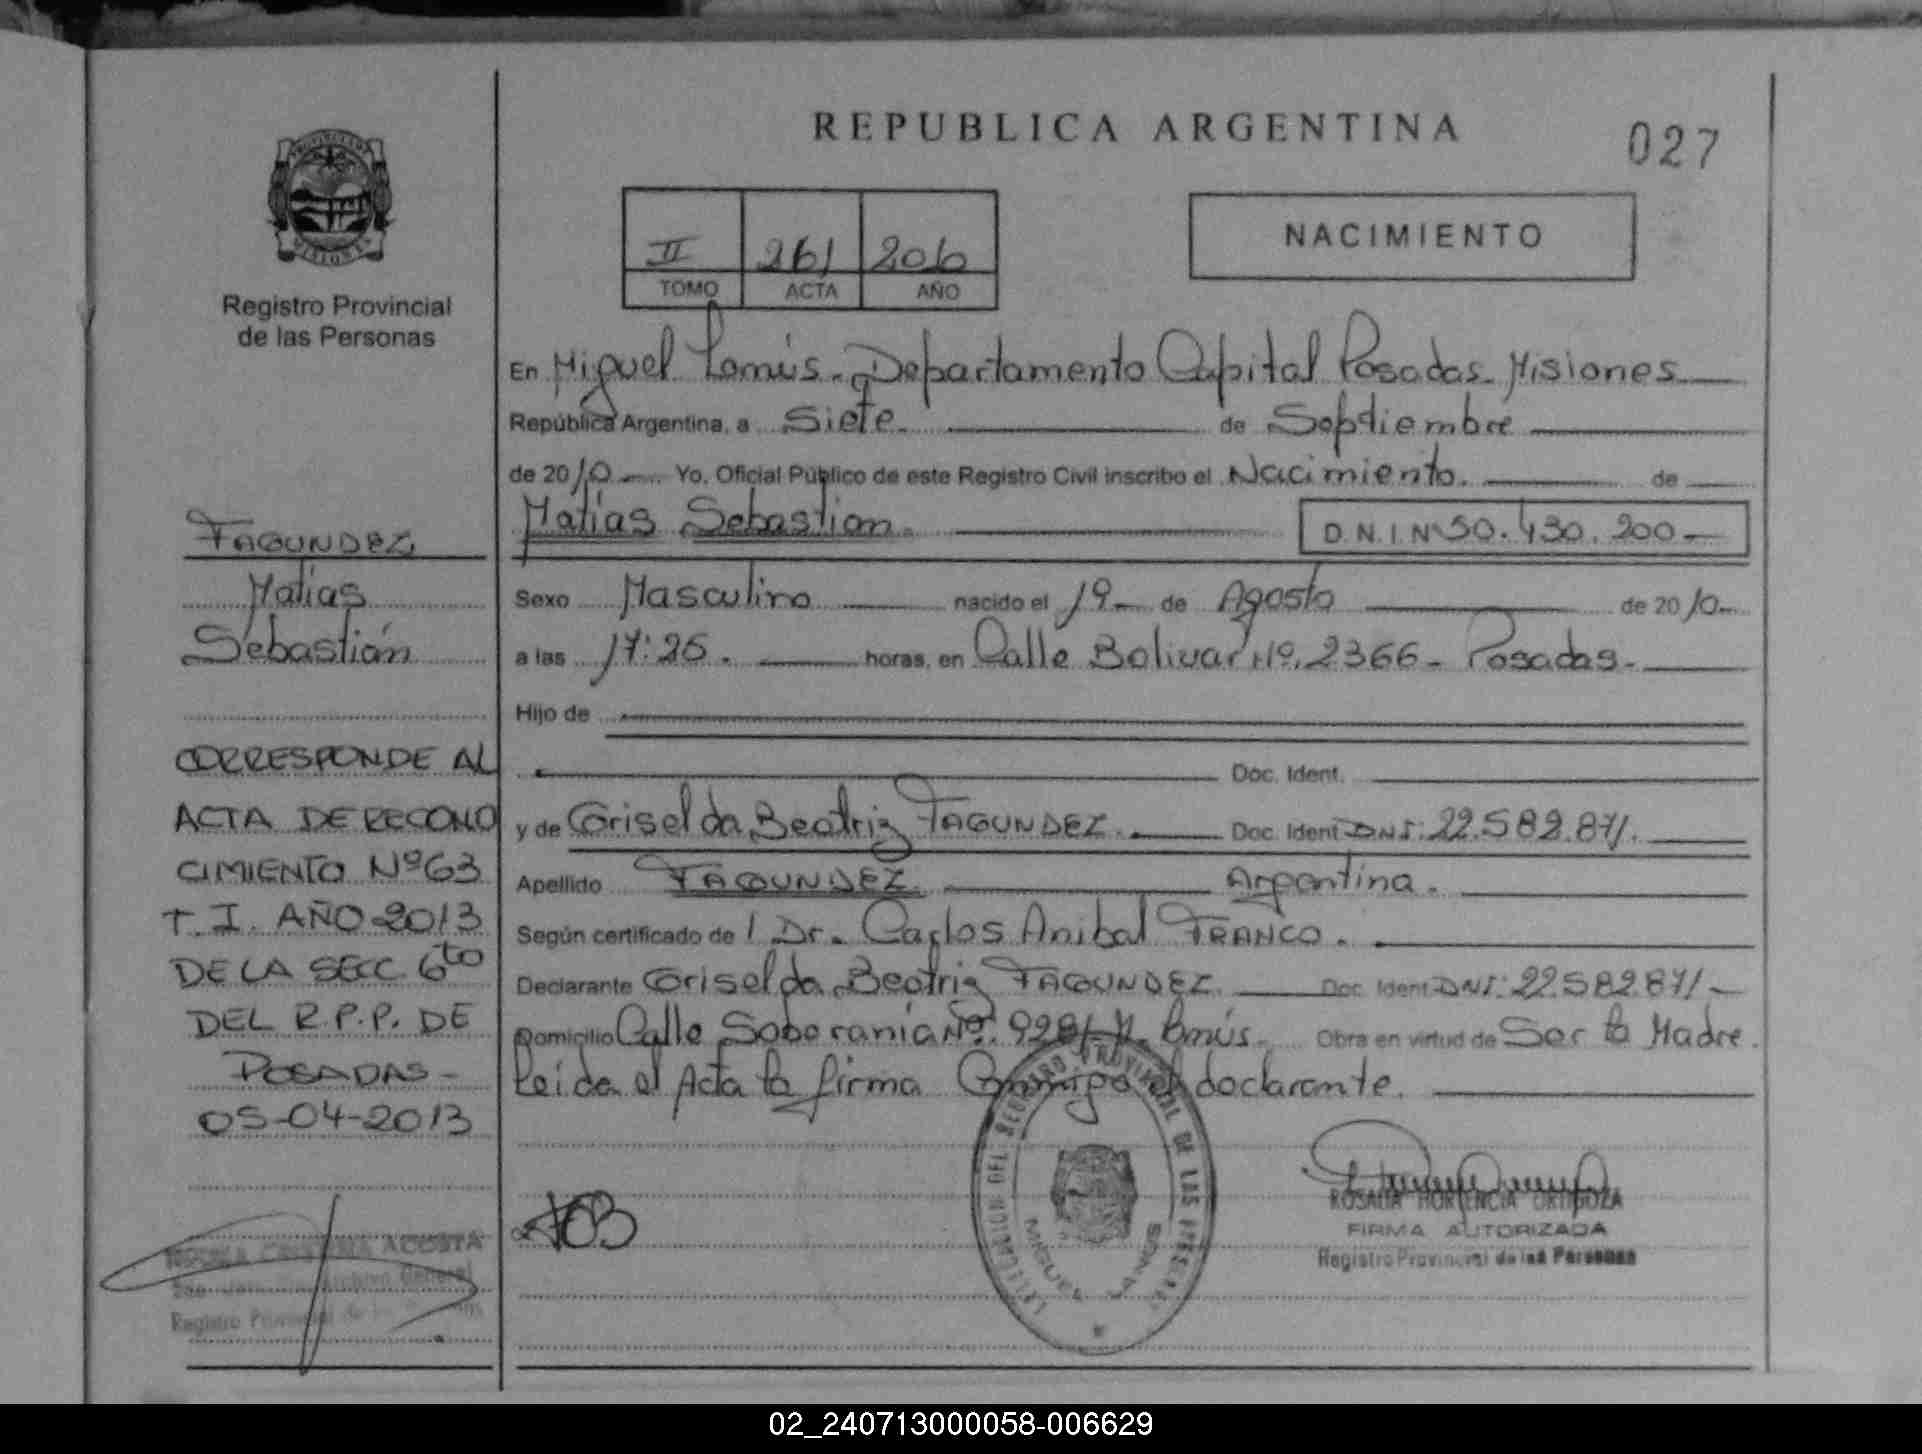 REPUBLICA ARGENTINA
027
PROVINCIA DE MISIONES
Registro Provincial
de las Personas
II 261 2010
TOMO ACTA AÑO
NACIMIENTO
En Miguel Lanús. Departamento Capital Posadas. Misiones
República Argentina, a Siete de Septiembre
de 2010 Yo, Oficial Público de este Registro Civil inscribo el Nacimiento. de
Matías Sebastian. D.N.I. Nº 50.430.200
Sexo Masculino nacido el 19 de Agosto de 2010
a las 17:25. horas, en Calle Bolivar Nº. 2366 - Posadas.
Hijo de
Doc. Ident.
y de Griselda Beatriz FAGUNDEZ. Doc. Ident DNI: 22.582.871.
Apellido FAGUNDEZ. Argentina.
Según certificado de l Dr. Carlos Anibal FRANCO.
Declarante Griselda Beatriz FAGUNDEZ. Doc. Ident DNI: 22.582.871
Domicilio Calle Soberanía Nº. 928 Lanús. Obra en virtud de Ser la Madre.
Leída el Acta la firma Conmigo el declarante.
FAGUNDEZ
Matías
Sebastián
CORRESPONDE AL
ACTA DE RECONO
CIMIENTO Nº 63
T. I. AÑO 2013
DE LA SECC. 6to
DEL R.P.P. DE
POSADAS -
05-04-2013
CRISTINA ACOSTA
Archivo General
Registro Provincial de las
DELEGACION DEL REGISTRO PROVINCIAL DE LAS PERSONAS
MIGUEL LANUS
ROSALIA HORTENCIA ORTIGOZA
FIRMA AUTORIZADA
Registro Provincial de las Personas
02_240713000058-006629